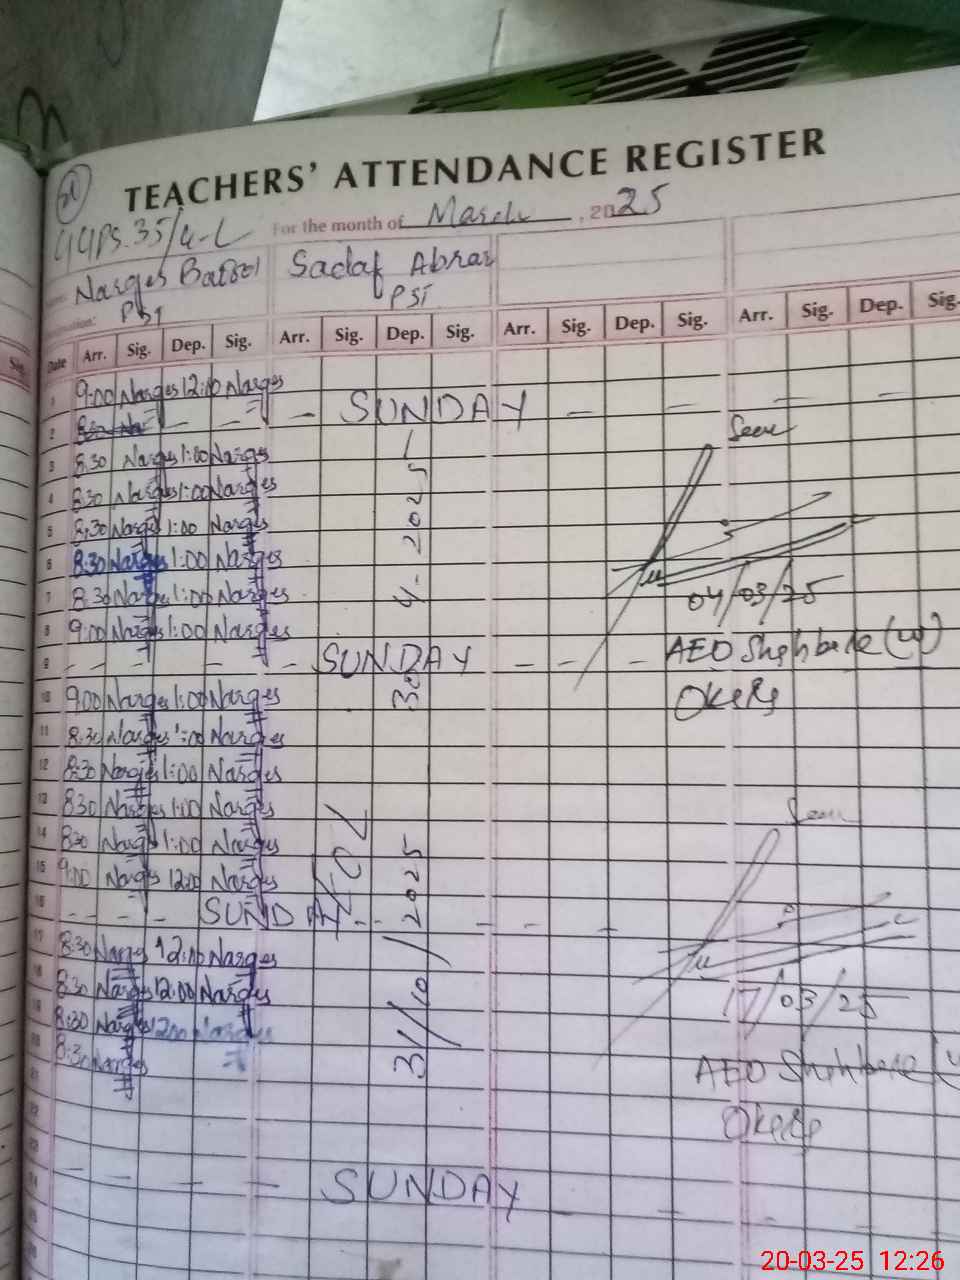 TEACHERS' ATTENDANCE REGISTER
For the month of March, 2025
GGPS.35/4-L
Narges Batool Sadaf Abrar
PST PST
Date Arr. Sig. Dep. Sig. Arr. Sig. Dep. Sig. Arr. Sig. Dep. Sig. Arr. Sig. Dep. Sig.
1 9:00 Narges 12:00 Narges
2 — — — SUNDAY — — — —
3 8:30 Narges 1:00 Narges
4 8:30 Narges 1:00 Narges
5 8:30 Narges 1:00 Narges
6 8:30 Narges 1:00 Narges
7 8:30 Narges 1:00 Narges
8 9:00 Narges 1:00 Narges
9 - - - - - SUNDAY - - -
10 9:00 Narges 1:00 Narges
11 8:30 Narges 1:00 Narges
12 8:30 Narges 1:00 Narges
13 8:30 Narges 1:00 Narges
14 8:30 Narges 1:00 Narges
15 9:00 Narges 12:00 Narges
16 - - - - SUNDAY - - - - -
17 8:30 Narges 12:00 Narges
18 8:30 Narges 12:00 Narges
19 8:30 Narges 12:00 Narges
20 8:30 Narges
21
22
23
24 — — — — SUNDAY - - -
25
26
30-4-2025
31/10/2025
Seen
04/03/25
AEO Shahbore (w)
Okara
Seen
17/03/25
AEO Shahbore (w
Okara
20-03-25 12:26